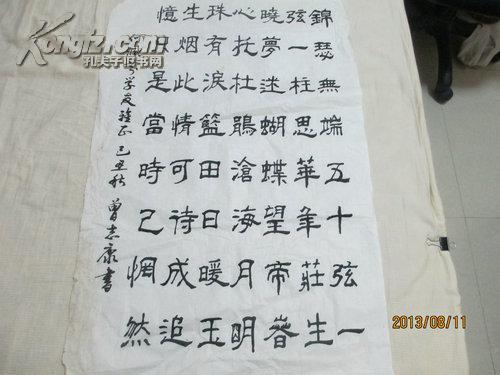 錦瑟無端五十弦一
弦一柱思華年莊生
曉夢迷蝴蝶望帝春
心托杜鵑滄海月明
珠有淚籃田日暖玉
生烟此情可待成追
憶只是當時已惘然
学友雅正 己丑秋 曾志康書
Kongfz.com
孔夫子旧书网
2013/08/11